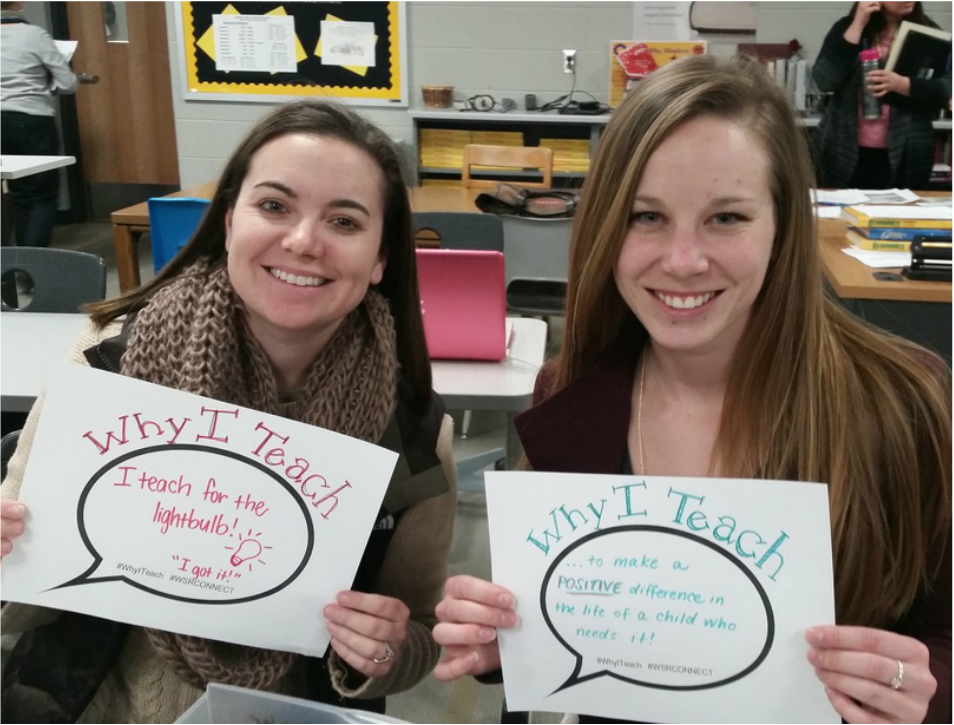 Why I Teach
I teach for the
lightbulb!
"I got it!"
#WhyITeach #WSRCONNECT
Why I Teach
...to make a
POSITIVE difference in
the life of a child who
needs it!
#WhyITeach #WSRCONNECT